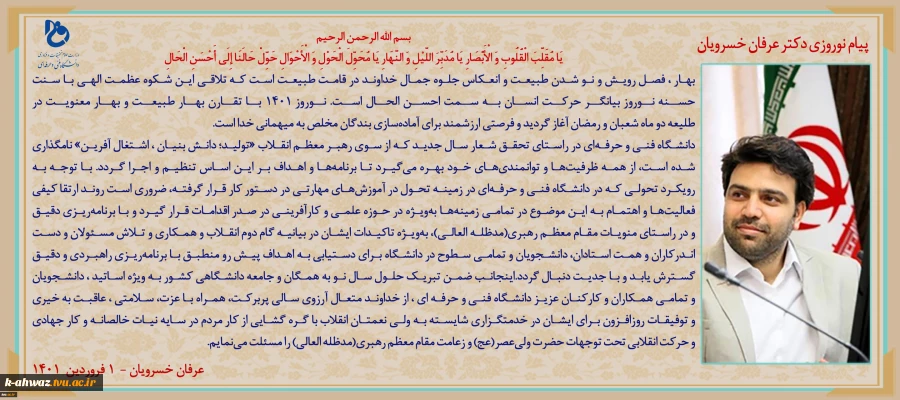 پیام نوروزی دکتر عرفان خسرویان
بسم الله الرحمن الرحیم
یَا مُقَلِّبَ الْقُلُوبِ وَ الْأَبْصَارِ یَا مُدَبِّرَ اللَّیْلِ وَ النَّهَارِ یَا مُحَوِّلَ الْحَوْلِ وَ الْأَحْوَالِ حَوِّلْ حَالَنَا إِلَى أَحْسَنِ الْحَالِ
بهار، فصل رویش و نو شدن طبیعت و انعکاس جلوه جمال خداوند در قامت طبیعت است که تلاقی این شکوه عظمت الهی با سنت
حسنه نوروز بیانگر حرکت انسان به سمت احسن الحال است. نوروز ۱۴۰۱ با تقارن بهار طبیعت و بهار معنویت در
طلیعه دو ماه شعبان و رمضان آغاز گردید و فرصتی ارزشمند برای آماده‌سازی بندگان مخلص به میهمانی خدا است.
دانشگاه فنی و حرفه‌ای در راستای تحقق شعار سال جدید که از سوی رهبر معظم انقلاب «تولید؛ دانش بنیان ، اشتغال آفرین» نامگذاری
شده است، از همه ظرفیت‌ها و توانمندی‌های خود بهره می‌گیرد تا برنامه‌ها و اهداف بر این اساس تنظیم و اجرا گردد. با توجه به
رویکرد تحولی که در دانشگاه فنی و حرفه‌ای در زمینه تحول در آموزش‌های مهارتی در دستور کار قرار گرفته، ضروری است روند ارتقا کیفی
فعالیت‌ها و اهتمام به این موضوع در تمامی زمینه‌ها به‌ویژه در حوزه علمی و کارآفرینی در صدر اقدامات قرار گیرد و با برنامه‌ریزی دقیق
و در راستای منویات مقام معظم رهبری(مدظله العالی)، به‌ویژه تاکیدات ایشان در بیانیه گام دوم انقلاب و همکاری و تلاش مسئولان و دست
اندرکاران و همت استادان، دانشجویان و تمامی سطوح در دانشگاه برای دستیابی به اهداف پیش رو منطبق با برنامه‌ریزی راهبردی و دقیق
گسترش یابد و با جدیت دنبال گردد.اینجانب ضمن تبریک حلول سال نو به همگان و جامعه دانشگاهی کشور به ویژه اساتید ، دانشجویان
و تمامی همکاران و کارکنان عزیز دانشگاه فنی و حرفه ای ، از خداوند متعال آرزوی سالی پربرکت، همراه با عزت، سلامتی ، عاقبت به خیری
و توفیقات روزافزون برای ایشان در خدمتگزاری شایسته به ولی نعمتان انقلاب با گره گشایی از کار مردم در سایه نیات خالصانه و کار جهادی
و حرکت انقلابی تحت توجهات حضرت ولی‌عصر(عج) و زعامت مقام معظم رهبری(مدظله العالی) را مسئلت می‌نمایم.
عرفان خسرویان - ۱ فروردین ۱۴۰۱
k-ahwaz.tvu.ac.ir